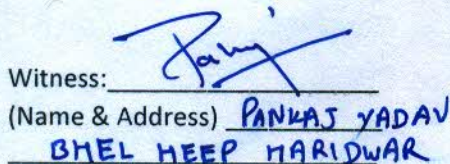 Witness:
(Name & Address) PANKAJ YADAV
BHEL HEEP HARIDWAR